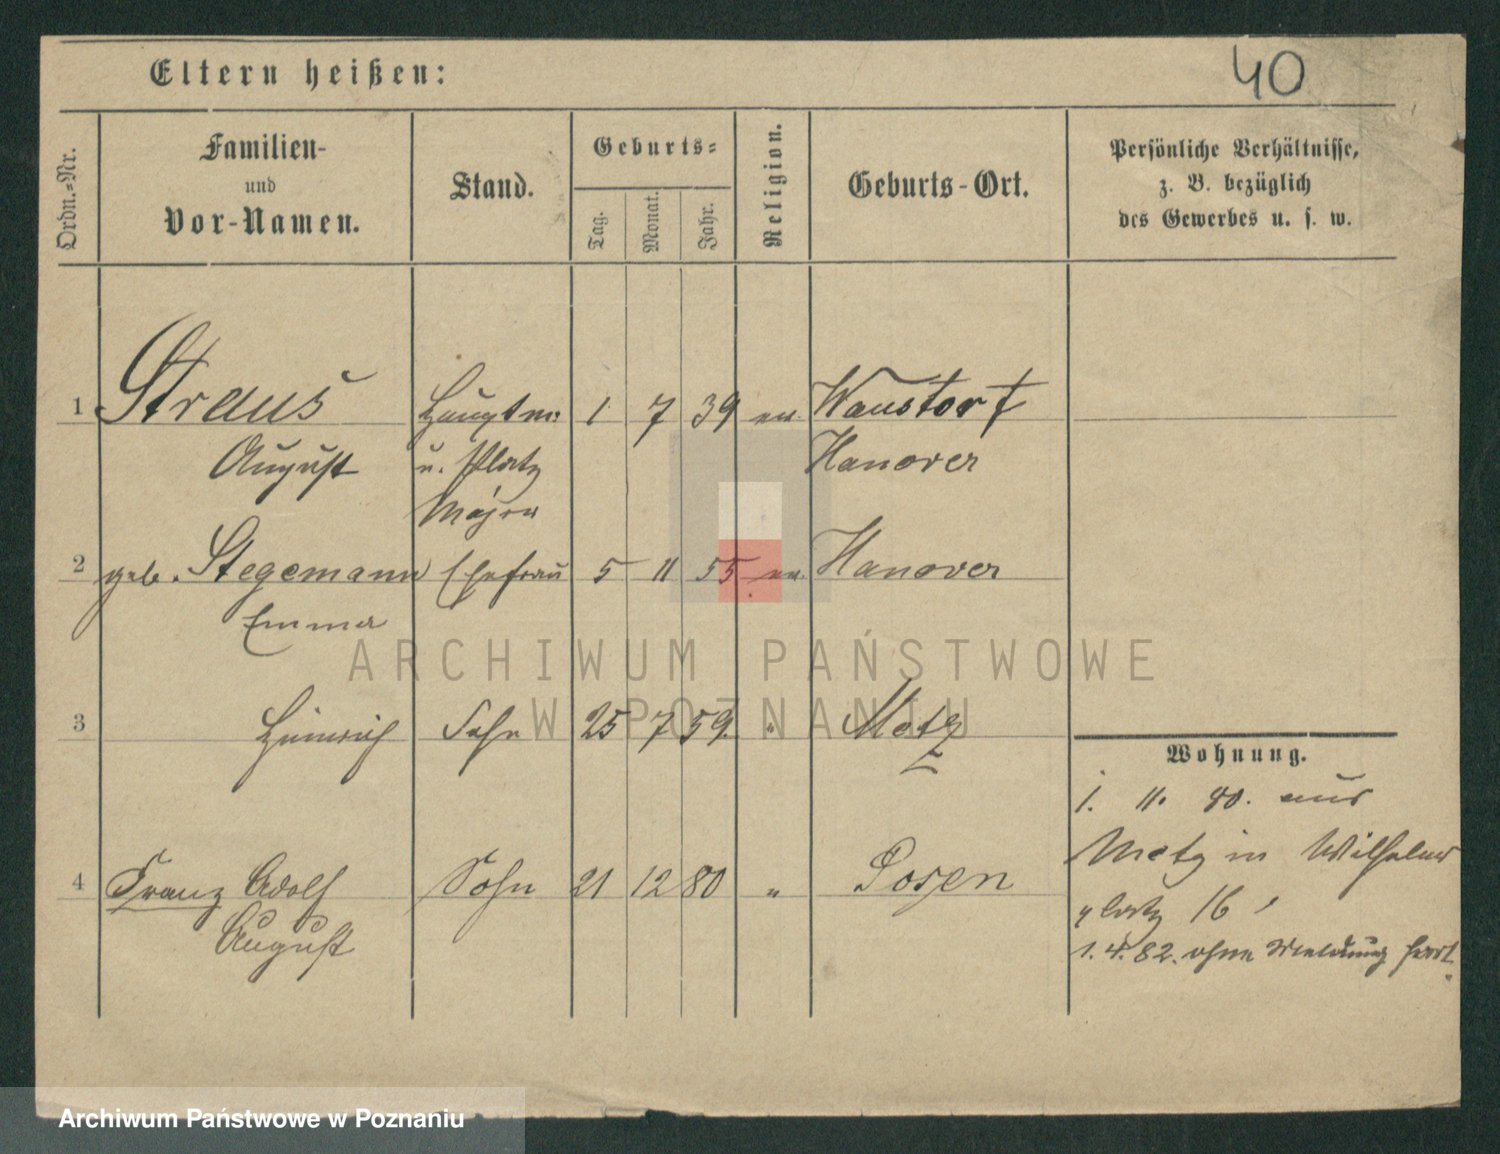 40
Eltern heißen:
Ordn.-Nr.
Familien-
und
Vor-Namen.
Stand.
Geburts-
Tag.
Monat.
Jahr.
Religion.
Geburts-Ort.
Persönliche Verhältnisse,
z. B. bezüglich
des Gewerbes u. s. w.
1 Straus Hauptm: 1. 7 39 ev. Wanstorf
August u. Platz Hanover
Major
2 geb. Stegemann Ehefrau 5 11 55 ev. Hanover
Emma
3 Heinrich Sohn 25 7 59. " Metz
Wohnung.
1. 11. 80. aus
Metz in Wilhelms
platz 16,
4 Franz Adolf Sohn 21 12 80 " Posen
August
1. 4. 82. ohne Meldung fort.
ARCHIWUM PAŃSTWOWE
W POZNANIU
Archiwum Państwowe w Poznaniu